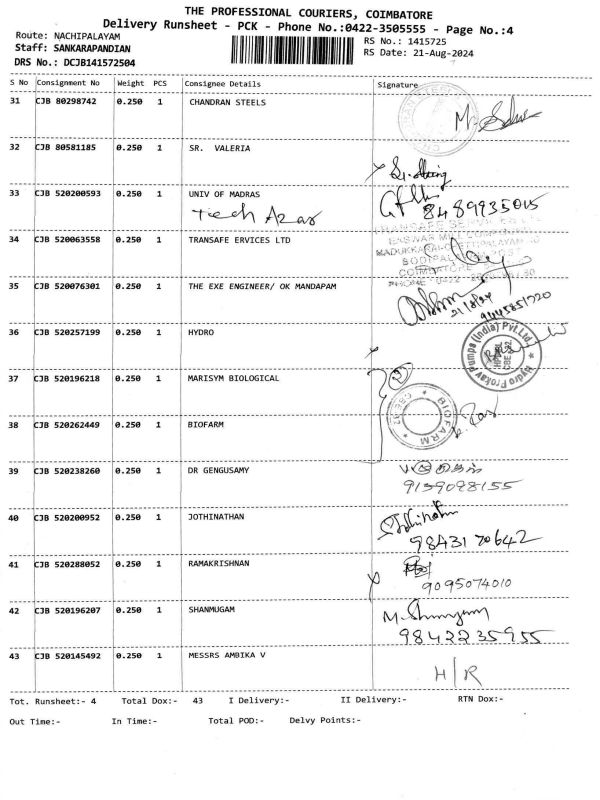 THE PROFESSIONAL COURIERS, COIMBATORE
Delivery Runsheet - PCK - Phone No.:0422-3505555 - Page No.:4
Route: NACHIPALAYAM
Staff: SANKARAPANDIAN
DRS No.: DCJB141572504
RS No.: 1415725
RS Date: 21-Aug-2024
S No Consignment No Weight PCS Consignee Details Signature
31 CJB 80298742 0.250 1 CHANDRAN STEELS
32 CJB 80581185 0.250 1 SR. VALERIA
33 CJB 520200593 0.250 1 UNIV OF MADRAS
8489935015
34 CJB 520063558 0.250 1 TRANSAFE ERVICES LTD
35 CJB 520076301 0.250 1 THE EXE ENGINEER/ OK MANDAPAM
21/8/24
9445851720
36 CJB 520257199 0.250 1 HYDRO
Hydro Prokav Pumps (India) Pvt Ltd.
37 CJB 520196218 0.250 1 MARISYM BIOLOGICAL
2
38 CJB 520262449 0.250 1 BIOFARM
BIOFARM
39 CJB 520238260 0.250 1 DR GENGUSAMY
9159098155
40 CJB 520200952 0.250 1 JOTHINATHAN
98431 70642
41 CJB 520288052 0.250 1 RAMAKRISHNAN
9095074010
42 CJB 520196207 0.250 1 SHANMUGAM
9842235955
43 CJB 520145492 0.250 1 MESSRS AMBIKA V
H/R
Tot. Runsheet:- 4 Total Dox:- 43 I Delivery:- II Delivery:- RTN Dox:-
Out Time:- In Time:- Total POD:- Delvy Points:-